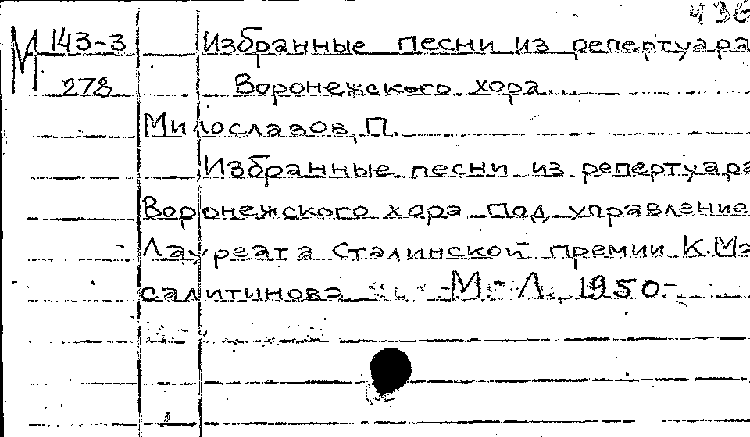 436
М 143-3 Избранные песни из репертуара
278 Воронежского хора
Милославов, П.
Избранные песни из репертуара
Воронежского хора под управление
Лауреата Сталинской премии К.Ма
салитинова М.-Л., 1950.-